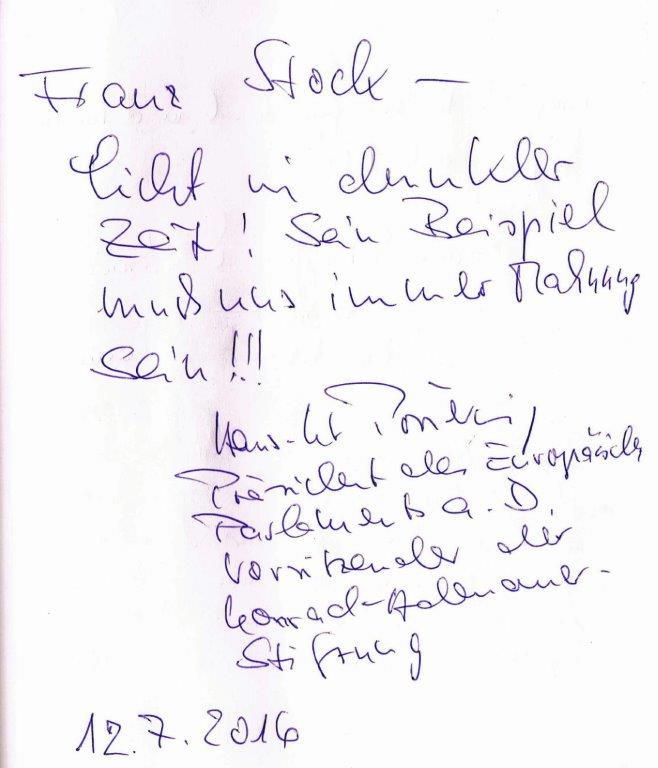 Franz Stock –
Licht in dunkler
Zeit! Sein Beispiel
muß uns immer Mahnung
sein!!!
Hans-Gert Pöttering,
Präsident des Europäischen
Parlaments a.D.
Vorsitzender der
Konrad-Adenauer-
Stiftung
12.7.2016